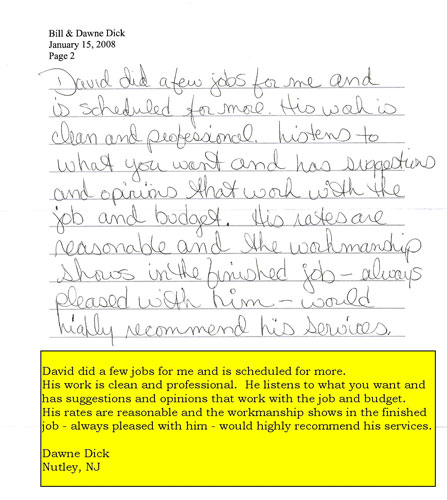 Bill & Dawne Dick
January 15, 2008
Page 2
David did a few jobs for me and
is scheduled for more. His work is
clean and professional. listens to
what you want and has suggestions
and opinions that work with the
job and budget. His rates are
reasonable and the workmanship
shows in the finished job - always
pleased with him - would
highly recommend his services.
David did a few jobs for me and is scheduled for more.
His work is clean and professional. He listens to what you want and
has suggestions and opinions that work with the job and budget.
His rates are reasonable and the workmanship shows in the finished
job - always pleased with him - would highly recommend his services.
Dawne Dick
Nutley, NJ